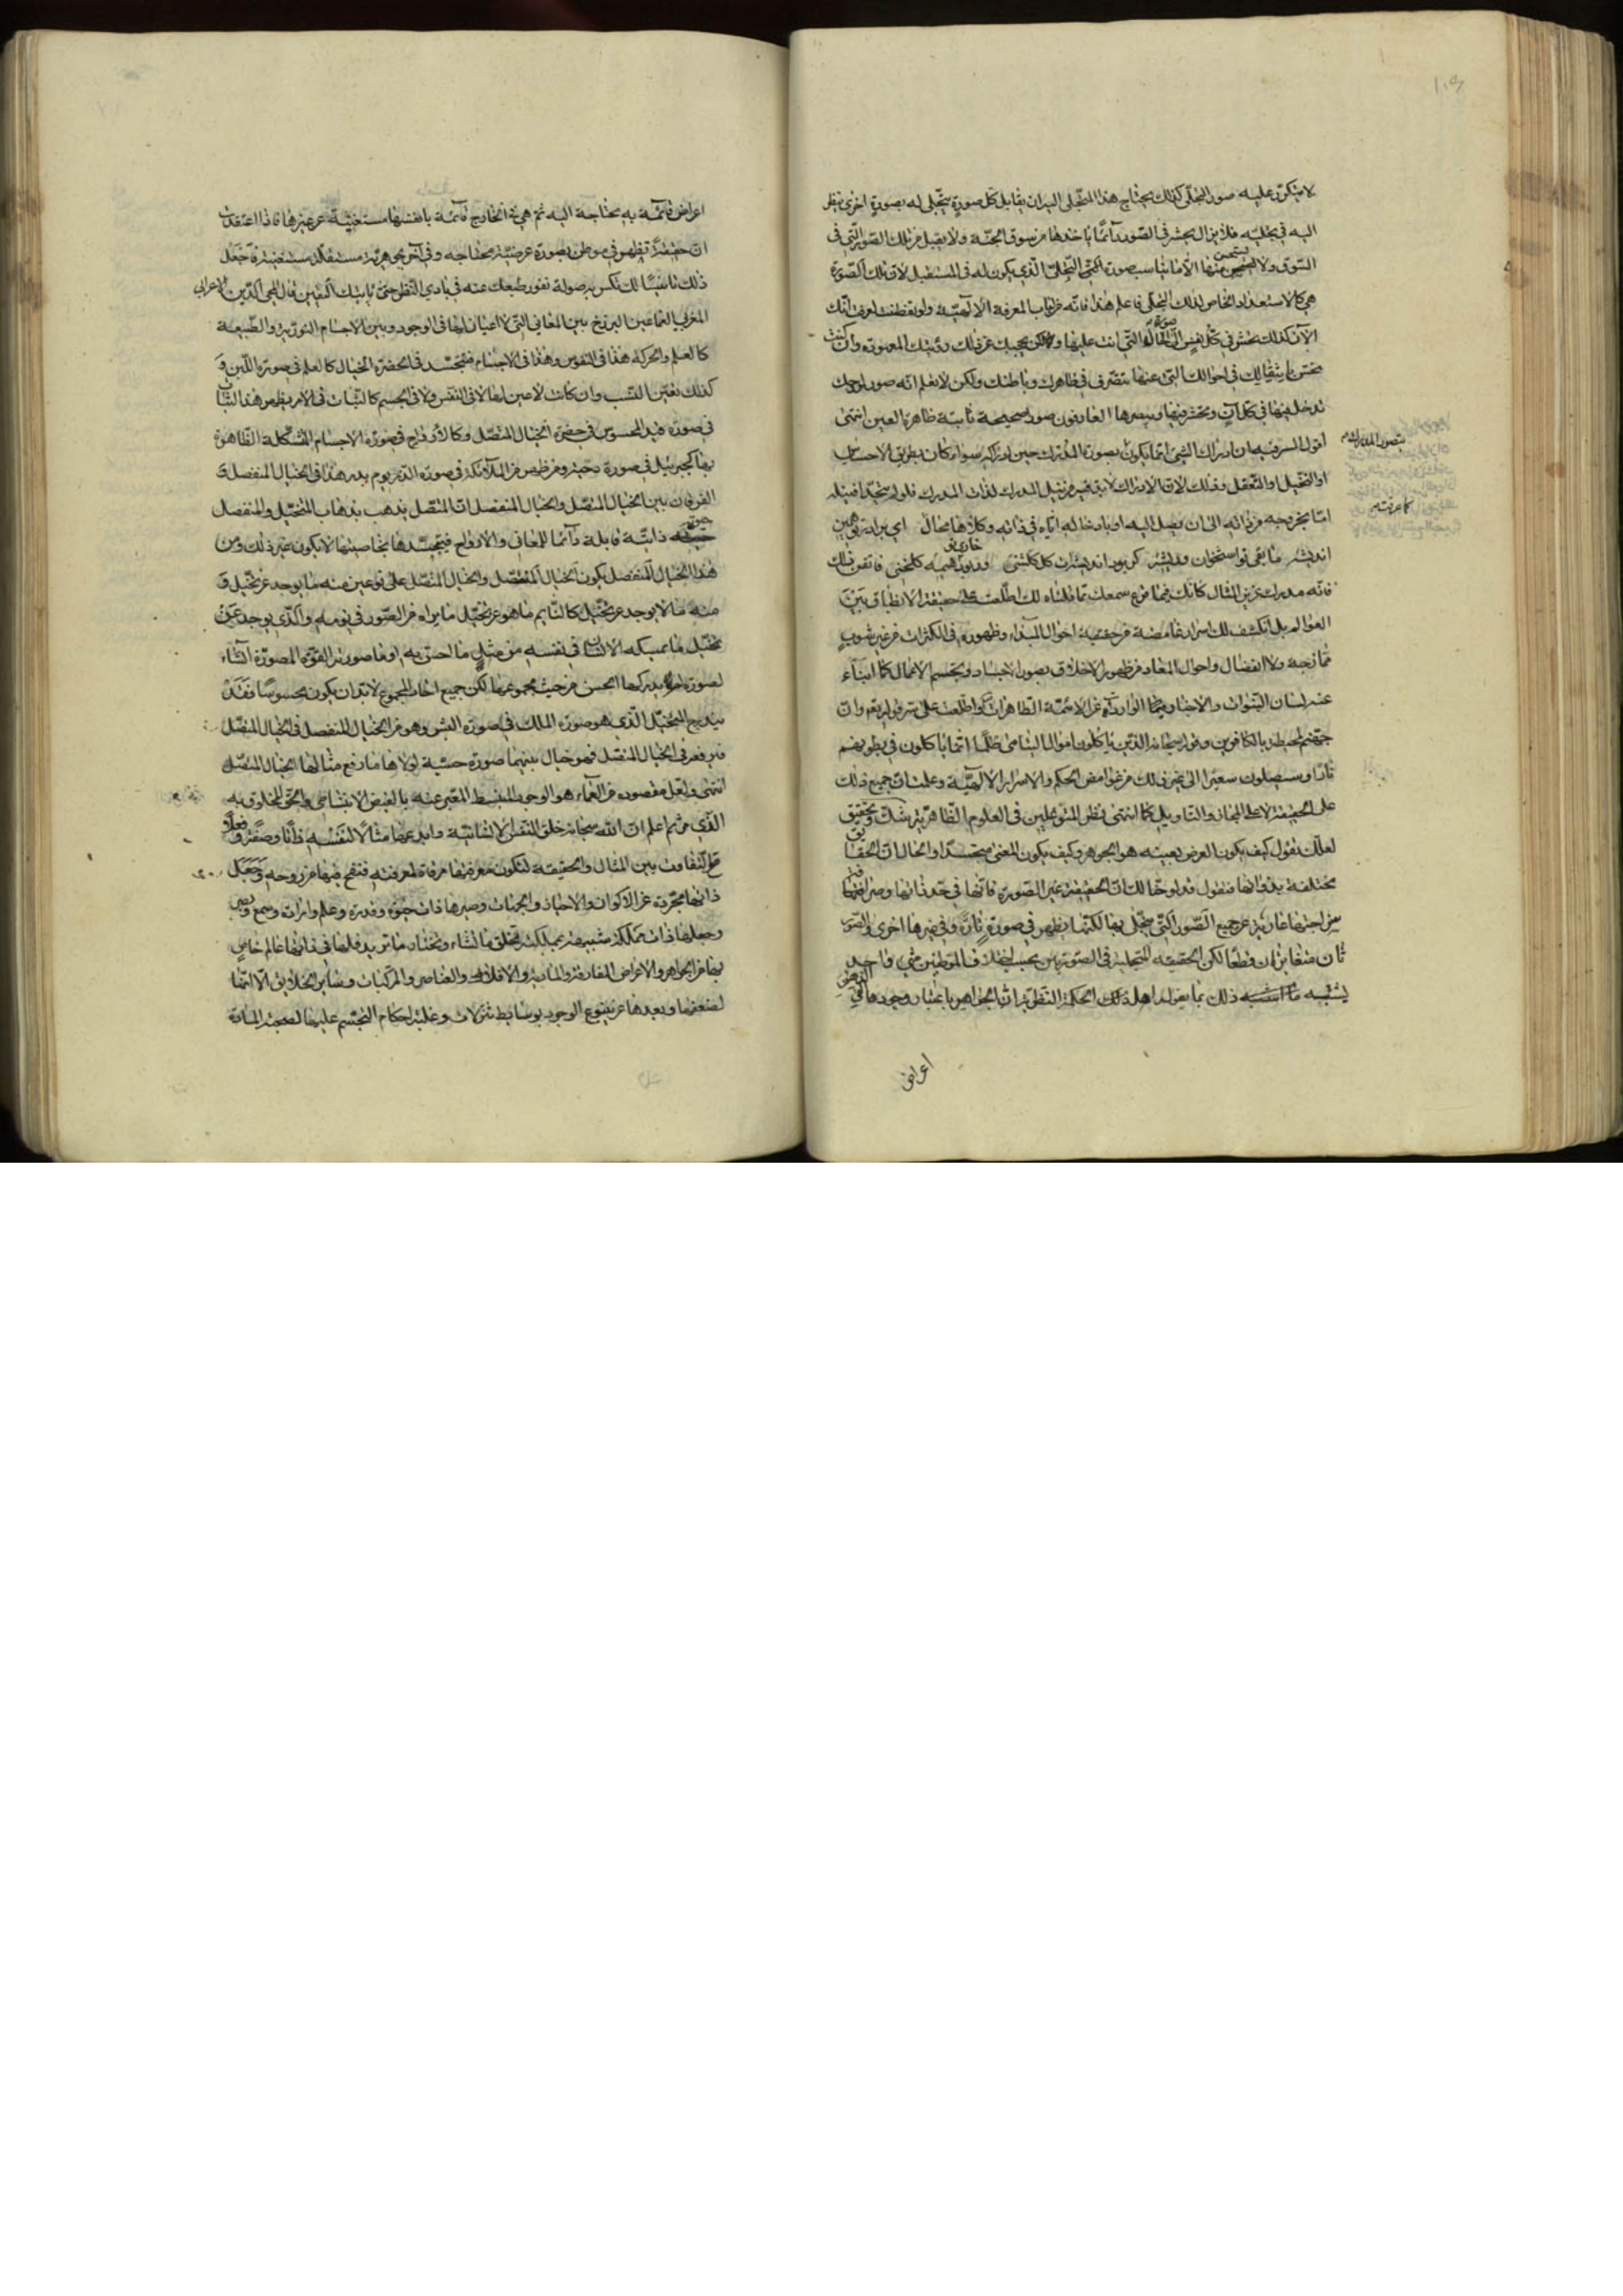 لا يتكرر عليه صور التجلي كذلك يحتاج هذا المتجلى اليه ان يقابل كل صورة يتجلى له بصورة اخرى ينظر
اليه في تجليه فلا يزال يحشر في الصور دائما ياخذها من سوق الجنة ولا يقبل من تلك الصور التي في
السوق ولا يستحسن منها الا ما يناسب صورة التجلي الذي يكون له في المستقبل لان تلك الصورة
هي كالاستعداد الخاص لذلك التجلي فاعلم هذا فانه من لباب المعرفة الالهية ولو تفطنت لعرفت انك
الآن كذلك تحشر في كل نفس في صورة الحال التي انت عليها ولكن يحجبك عن ذلك رؤيتك المعهودة وان كنت
تحس بانتقالك في احوالك التي عنها تتصرف في ظاهرك وباطنك ولكن لا تعلم انه صور لروحك
تدخل فيها في كل آن وتحشر فيها ويبصرها العارفون صورا صحيحة ثابتة ظاهرة العين انتهى
اقول السر فيه ان ادراك الشئ انما يكون بصورة المدرك حين ادراكه سواء كان بطريق الاحساس
او التخيل او التعقل وذلك لان الادراك لا بد فيه من نيل المدرك لذات المدرك فلو لم يتحدا فنيله
اما بخروجه من ذاته الى ان يصل اليه او بادخاله اياه في ذاته وكلاهما محال اى برادر تو همين
انديشه ما بقى تو استخوان وريشه كر بود انديشه ات كل كلشنى ور بود خارى تو هيمه كلخنى فاتقن ذلك
فانه مدرك عزيز المنال كانك فيما قرع سمعك مما قلناه لك اطلعت على حقيقة الانطباق بين
العوالم بل انكشف لك اسرار غامضة من حقيقة احوال المبداء وظهوره في الكثرات من غير شوب
ممازجة ولا انفصال واحوال المعاد من ظهور الاخلاق بصور الاجساد وتجسم الاعمال كما انباء
عنه لسان النبوات والاخبار الواردة عن الائمة الطاهرات واطلعت على سر قوله تعم وان
جهنم لمحيطة بالكافرين وقوله سبحانه الذين ياكلون اموال اليتامى ظلما انما ياكلون في بطونهم
نارا وسيصلون سعيرا الى غير ذلك من غوامض الحكم والاسرار الالهية وعلمت ان جميع ذلك
على الحقيقة لا على المجاز والتاويل كما انتهى نظر المتوغلين في العلوم الظاهرية شك وتحقيق
لعلك تقول كيف يكون العرض بعينه هو الجوهر وكيف يكون المعنى متجسدا والحال ان الحقايق
مختلفة بذواتها فنقول قد لوحنا لك ان الحقيقة غير الصورة فانها في حد ذاتها وصرافتها
عارية عن جميع الصور التي يتجلى بها لكنها يظهر في صورة تارة وفي غيرها اخرى والصور
تان متغايرتان قطعا لكن الحقيقة المتجلية في الصورتين بحسب اختلاف الموطنين شئ واحد
يشبه ذلك بما يقوله اهل الحكمة النظرية ان الجواهر باعتبار وجودها في الذهن
بتصور المدرك
كما عرفت
اعراض
اعراض قائمة به محتاجة اليه ثم هي في الخارج قائمة بانفسها مستغنية عن غيرها فاذا اعتقدت
ان حقيقة تظهر في موطن بصورة عرضية محتاجه وفي آخر بجوهرية مستقلة مستغنية فاجعل
ذلك تانيسا لك تكسر به صولة نفور طبعك عنه في بادي النظر حتى ياتيك اليقين قال محى الدين الاعرابي
المغربي العماء عين البرزخ بين المعاني التي لا اعيان لها في الوجود وبين الاجسام النورية والطبيعية
كالعلم والحركة هذا في النفوس وهذا في الاجسام فتتجسد في الحضرة الخيال كالعلم في صورة اللبن و
كذلك تعين النسب وان كانت لا عين لها لا في النفس ولا في الجسم كالثبات في الامر يظهر هذا الثبات
في صورة قيد المحسوس في حضرة الخيال المتصل وكالارواح في صورة الاجسام المتشكلة الظاهرة
بها كجبرئيل في صورة دحية ومن ظهر من الملائكة في صورة الذر يوم بدر هذا في الخيال المنفصل و
الفرقان بين الخيال المتصل والخيال المنفصل ان المتصل يذهب بذهاب المتخيل والمنفصل
حضرة ذاتية قابلة دائما للمعاني والارواح فتجسدها بخاصيتها لا يكون غير ذلك ومن
هذا الخيال المنفصل يكون الخيال المتصل والخيال المتصل على نوعين منه ما يوجد عن تخيل و
منه ما لا يوجد عن تخيل كالنايم ما هو عن تخيل ما يراه من الصور في نومه والذي يوجد عن
تخيل ما يمسكه الانسان في نفسه من مثل ما احس به او ما صورته القوة المصورة انشاء
لصورة لم يدركها الحس من حيث مجموعها لكن جميع احاد المجموع لا بد ان يكون محسوسا فقد
يندرج المتخيل الذي هو صورة الملك في صورة البشر وهو من الخيال المنفصل في الخيال المتصل
فيرفعه في الخيال المتصل فهو خيال بينهما صورة حسية لولاها ما رفع مثالها الخيال المتصل
انتهى ولعل مقصوده من العماء هو الوجود المنبسط المعبر عنه بالفيض الانبساطى والحق المخلوق به
الذي مر ثم اعلم ان الله سبحانه خلق النفس الانسانية وابدعها مثالا لنفسه ذاتا وصفة وفعلا
مع التفاوت بين المثال والحقيقة لتكون معرفتها مرقاة لمعرفته فنفخ فيها من روحه وجعل
ذاتها مجردة عن الاكوان والاحياز والجهات وصيرها ذات حيوة وقدرة وعلم وارادة وسمع وبصر
وجعلها ذات مملكة شبيهة بمملكته تخلق ما تشاء وتختار ما تريد فلها في ذاتها عالم خاص
بها من الجواهر والاعراض المفارقة والمادية والافلاك والعناصر والمركبات وسائر الخلايق الا انها
لضعفها وبعدها عن ينبوع الوجود بوسائط تنزلات وغلبة احكام التجسم عليها لصحبة المادة